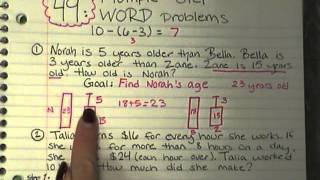 49
Multiple Step
WORD Problems
10-(6-3)= 7
3
① Norah is 5 years older than Bella. Bella is
3 years older than Zane. Zane is 15 years
old. How old is Norah?
Goal: Find Norah's age 23 years old
N 23 5 18+5=23 B 18 3 15 Z
② Talia earns $16 for every hour she works. If
she works for more than 8 hours on a day,
she $24 (each hour over). Talia worked
10 How much did she make?